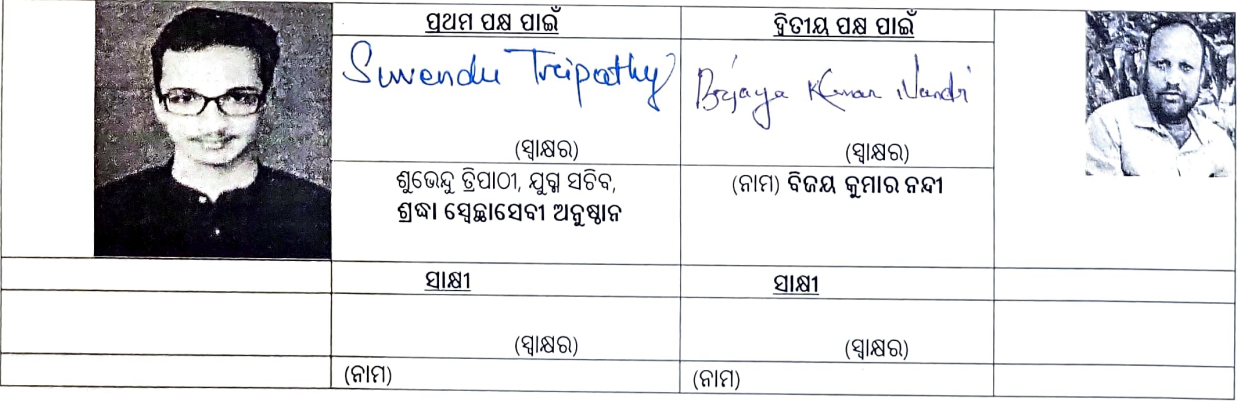 ପ୍ରଥମ ପକ୍ଷ ପାଇଁ
ଦ୍ଵିତୀୟ ପକ୍ଷ ପାଇଁ
Suvendu Tripathy
Bijaya Kumar Nandi
(ସ୍ୱାକ୍ଷର)
(ସ୍ୱାକ୍ଷର)
ଶୁଭେନ୍ଦୁ ତ୍ରିପାଠୀ, ଯୁଗ୍ମ ସଚିବ,
ଶ୍ରଦ୍ଧା ସ୍ୱେଚ୍ଛାସେବୀ ଅନୁଷ୍ଠାନ
(ନାମ) ବିଜୟ କୁମାର ନନ୍ଦୀ
ସାକ୍ଷୀ
ସାକ୍ଷୀ
(ସ୍ୱାକ୍ଷର)
(ସ୍ୱାକ୍ଷର)
(ନାମ)
(ନାମ)